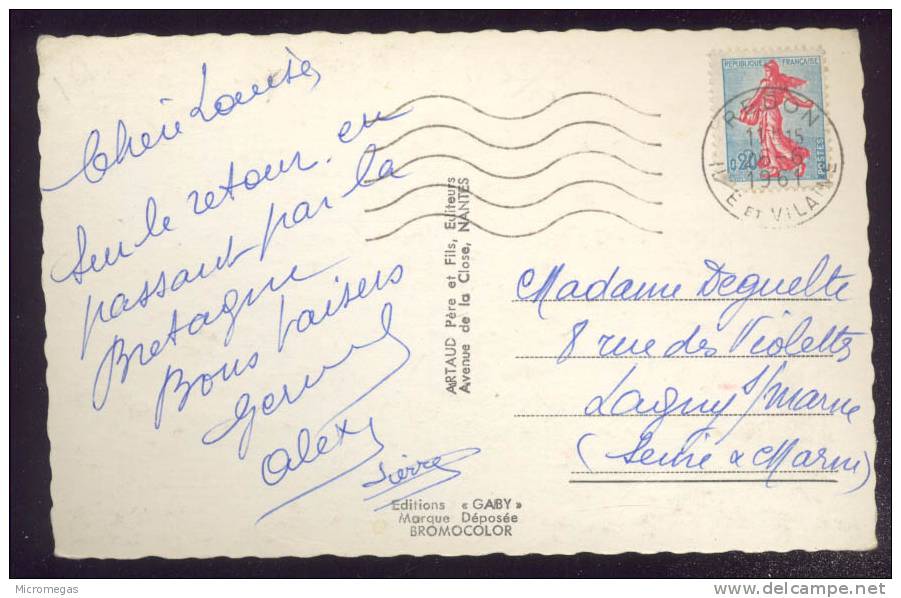 Chère Louise,
Sur le retour en
passant par la
Bretagne
Bons baisers
Alex
Pierre
ARTAUD Père et Fils, Editeurs
Avenue de la Close, NANTES
Editions « GABY »
Marque Déposée
BROMOCOLOR
REPUBLIQUE FRANÇAISE
0,20
POSTES
REDON
11H15
1961
ILLE ET VILAINE
Madame Deguelte
8 rue des Violettes
Lagny s/Marne
(Seine & Marne)
Micromegas
www.delcampe.net